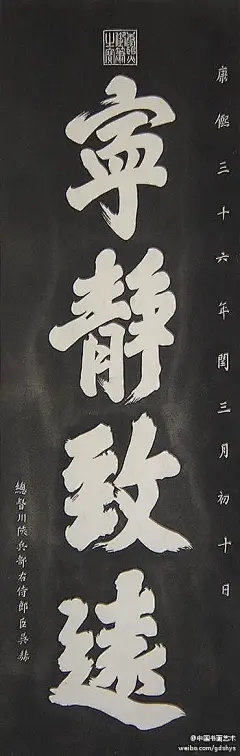 康熙三十六年閏三月初十日
康熙
御筆
之寶
寧靜致遠
總督川陝兵部右侍郎臣吳赫
@中国书画艺术
weibo.com/gdshys